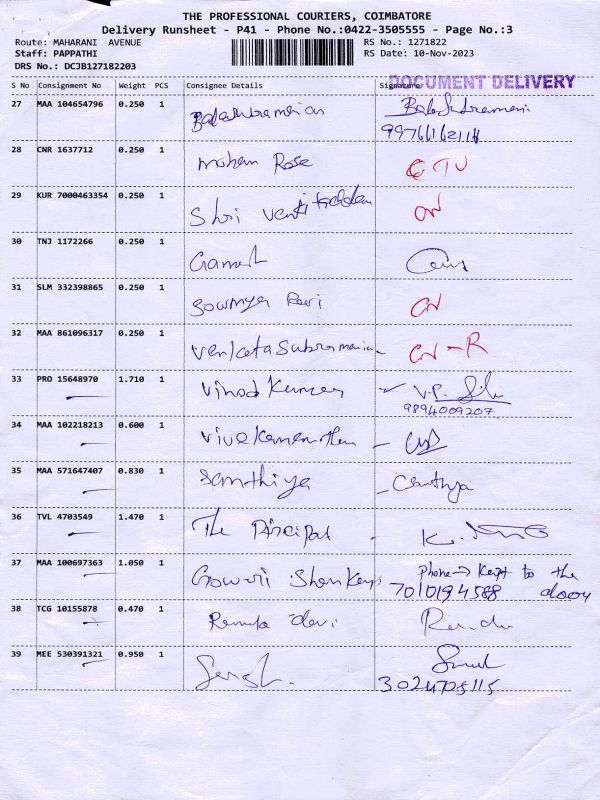 THE PROFESSIONAL COURIERS, COIMBATORE
Delivery Runsheet - P41 - Phone No.:0422-3505555 - Page No.:3
Route: MAHARANI AVENUE RS No.: 1271822
Staff: PAPPATHI RS Date: 10-Nov-2023
DRS No.: DCJB127182203
DOCUMENT DELIVERY
S No Consignment No Weight PCS Consignee Details Signature
27 MAA 104654796 0.250 1 Balasubramanian Balasubramani
9976616211
28 CNR 1637712 0.250 1 Mohan Rose
29 KUR 7000463354 0.250 1 Shri
30 TNJ 1172266 0.250 1 Ganesh
31 SLM 332398865 0.250 1 Sowmya Devi
32 MAA 861096317 0.250 1 Venkatasubramanian
33 PRO 15648970 1.710 1 Vinod Kumar V.P.
9894009207
34 MAA 102218213 0.600 1 Vivekanandhan
35 MAA 571647407 0.830 1 Santhiya
36 TVL 4703549 1.470 1 The Principal
37 MAA 100697363 1.050 1 Gowri Shankar Phone → Kept to the
7010194588 door
38 TCG 10155878 0.470 1 Renuka devi
39 MEE 530391321 0.950 1
3024705115